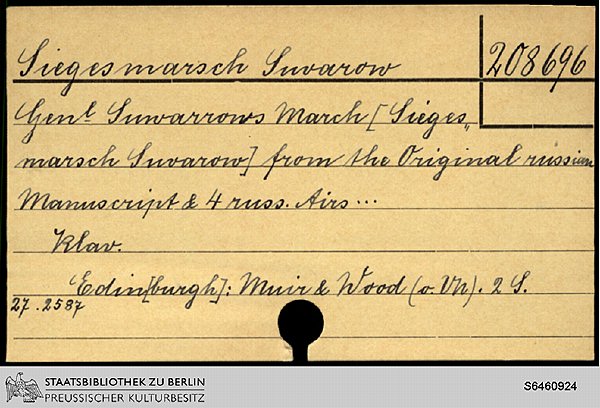 Siegesmarsch Suvarow
208696
Genl. Suwarrows March [Sieges„
marsch Suvarow] from the Original russian
Manuscript & 4 russ. Airs ...
Klav.
Edin[burgh]: Muir & Wood (o. Vn). 2 S.
27.2587
STAATSBIBLIOTHEK ZU BERLIN
PREUSSISCHER KULTURBESITZ
S6460924